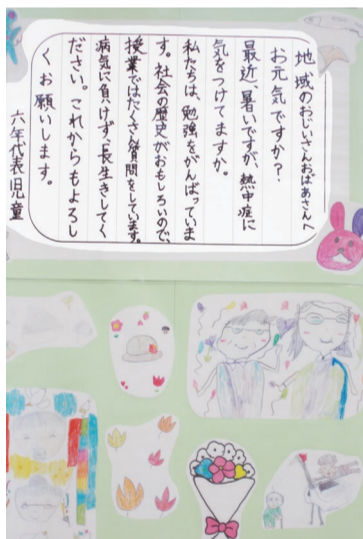 地域のおじいさんおばあさんへ
お元気ですか？
最近、暑いですが、熱中症に
気をつけてますか。
私たちは、勉強をがんばっていま
す。社会の歴史がおもしろいので、
授業ではたくさん質問をしています。
病気に負けず、長生きしてく
ださい。これからもよろし
くお願いします。
六年代表児童